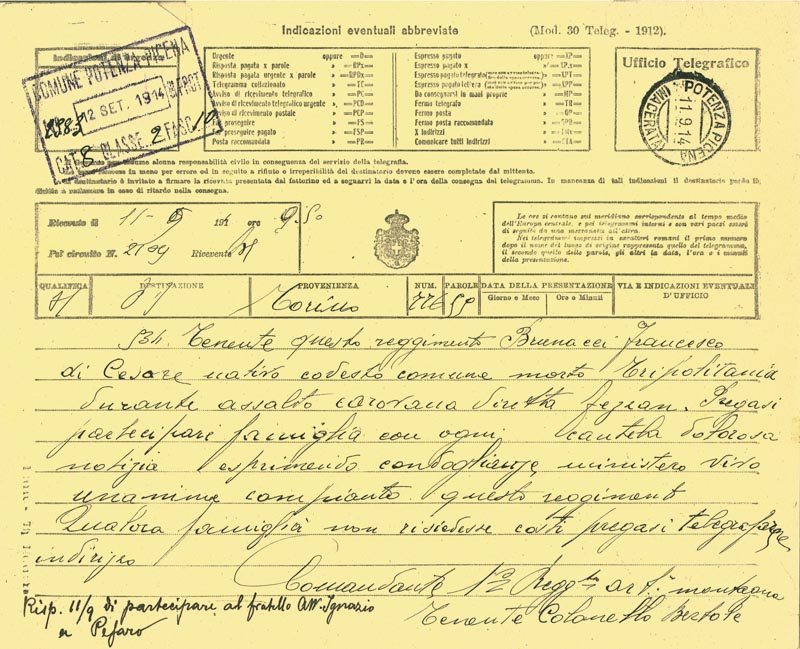 Indicazioni eventuali abbreviate
(Mod. 30 Teleg. - 1912).
COMUNE POTENZA PICENA
12 SET. 1914
CAT. 8 CLASSE. 2 FASC.
Urgente oppure =D=
Risposta pagata x parole » =RPx=
Risposta pagata urgente x parole » =RPDx=
Telegramma collazionato » =TC=
Avviso di ricevimento telegrafico » =PC=
Avviso di ricevimento telegrafico urgente » =PCD=
Avviso di ricevimento postale » =PCP=
Far proseguire » =FS=
Far proseguire pagato » =FSP=
Posta raccomandata » =PR=
Espresso pagato oppure =XP=
Espresso pagato x » =XPx=
Espresso pagato telegrafo » =XPT=
Espresso pagato lettera » =XPP=
Da consegnarsi in mani proprie » =MP=
Fermo telegrafo » =TR=
Fermo posta » =GP=
Fermo posta raccomandata » =GPR=
X indirizzi » =TMx=
Comunicare tutti indirizzi » =CTA=
Ufficio Telegrafico
POTENZA PICENA
11.9.14
(MACERATA)
alcuna responsabilità civile in conseguenza del servizio della telegrafia.
in meno per errore od in seguito a rifiuto o irreperibilità del destinatario devono essere completate dal mittente.
destinatario è invitato a firmare la ricevuta presentata dal fattorino ed a segnarvi la data e l'ora della consegna del telegramma. In mancanza di tali indicazioni il destinatario perde il
diritto a reclamare in caso di ritardo nella consegna.
Ricevuto il 11-9 191 ore 9.50
Pel circuito N. Ricevente
Le ore si contano sul meridiano corrispondente al tempo medio
dell'Europa centrale
Nei telegrammi impressi in caratteri romani il primo numero
dopo il nome del luogo di origine rappresenta quello del telegramma,
il secondo quello delle parole, gli altri la data, l'ora e i minuti
della presentazione.
QUALIFICA
DESTINAZIONE
PROVENIENZA
NUM.
PAROLE
DATA DELLA PRESENTAZIONE
Giorno e Mese
Ore e Minuti
VIA E INDICAZIONI EVENTUALI
D'UFFICIO
Torino
Tenente questo reggimento Brunacci Francesco
di Cesare nativo codesto comune morto Tripolitania
durante assalto carovana diretta fezzan. Pregasi
partecipare famiglia con ogni cautela dolorosa
notizia esprimendo condoglianze ministero vivo
unanime compianto questo reggiment
Qualora famiglia non risiedesse costì pregasi telegrafare
indirizzo
Comandante 1º Reggto art. montagna
Tenente Colonello Bertole
Risp. 11/9 di partecipare al fratello Avv. Ignazio
a Pesaro